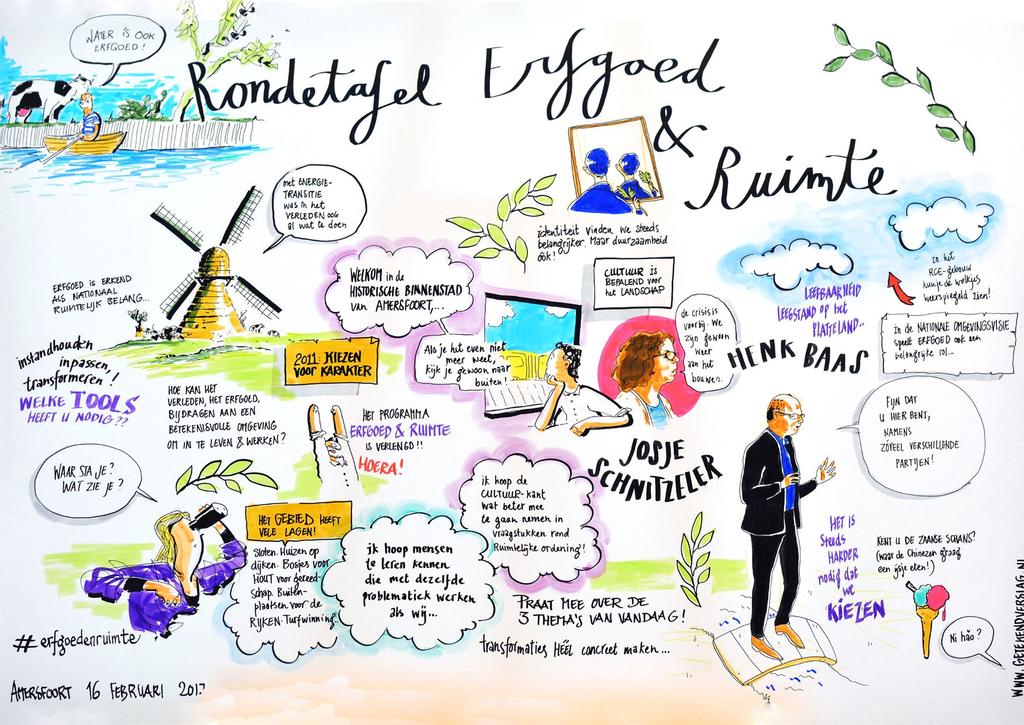 WATER IS OOK
ERFGOED!
Rondetafel Erfgoed
&
Ruimte
met ENERGIE-
TRANSITIE
was in het
VERLEDEN OOK
al wat te doen
identiteit vinden we steeds
belangrijker. Maar duurzaamheid
óók!
ERFGOED IS ERKEND
ALS NATIONAAL
RUIMTELIJK BELANG...
WELKOM in de
HISTORISCHE BINNENSTAD
van AMERSFOORT,...
CULTUUR is
BEPALEND voor
het LANDSCHAP
in het
RCE-gebouw
kun je de wolkjes
weerspiegeld zien!
LEEFBAARHEID
LEEGSTAND op het
PLATTELAND..
de crisis is
voorbij. We
zijn gewoon
weer
aan het
bouwen.
HENK BAAS
in de NATIONALE OMGEVINGSVISIE
speelt ERFGOED ook een
belangrijke rol...
instandhouden
inpassen,
transformeren!
WELKE TOOLS
HEEFT U NODIG??
2011: KIEZEN
VOOR KARAKTER
Als je het even niet
meer weet,
kijk je gewoon naar
buiten!
HOE KAN HET
VERLEDEN, HET ERFGOED,
BIJDRAGEN AAN EEN
BETEKENISVOLLE OMGEVING
OM IN TE LEVEN & WERKEN?
HET PROGRAMMA
ERFGOED & RUIMTE
IS VERLENGD!!
HOERA!
JOSJE
SCHNITZELER
FIJN DAT
U HIER BENT,
NAMENS
ZÓVEEL VERSCHILLENDE
PARTIJEN!
WAAR STA JE?
WAT ZIE JE?
HET GEBIED HEEFT
VELE LAGEN!
Sloten. Huizen op
dijken. Bosjes voor
HOUT voor gereed-
schap. Buiten-
plaatsen voor de
RIJKEN. Turfwinning.
ik hoop mensen
te leren kennen
die met dezelfde
problematiek werken
als wij...
ik hoop de
CULTUUR-kant
wat beter mee
te gaan nemen in
vraagstukken rond
Ruimtelijke ordening!
PRAAT MEE OVER DE
3 THEMA'S VAN VANDAAG!
transformaties HÉÉL concreet maken...
HET IS
Steeds
HARDER
nodig dat
we
KIEZEN
KENT U DE ZAANSE SCHANS?
(waar de Chinezen graag
een ijsje eten!)
Ni hǎo?
#erfgoedenruimte
AMERSFOORT 16 FEBRUARI 2017
WWW.GETEKENDVERSLAG.NL